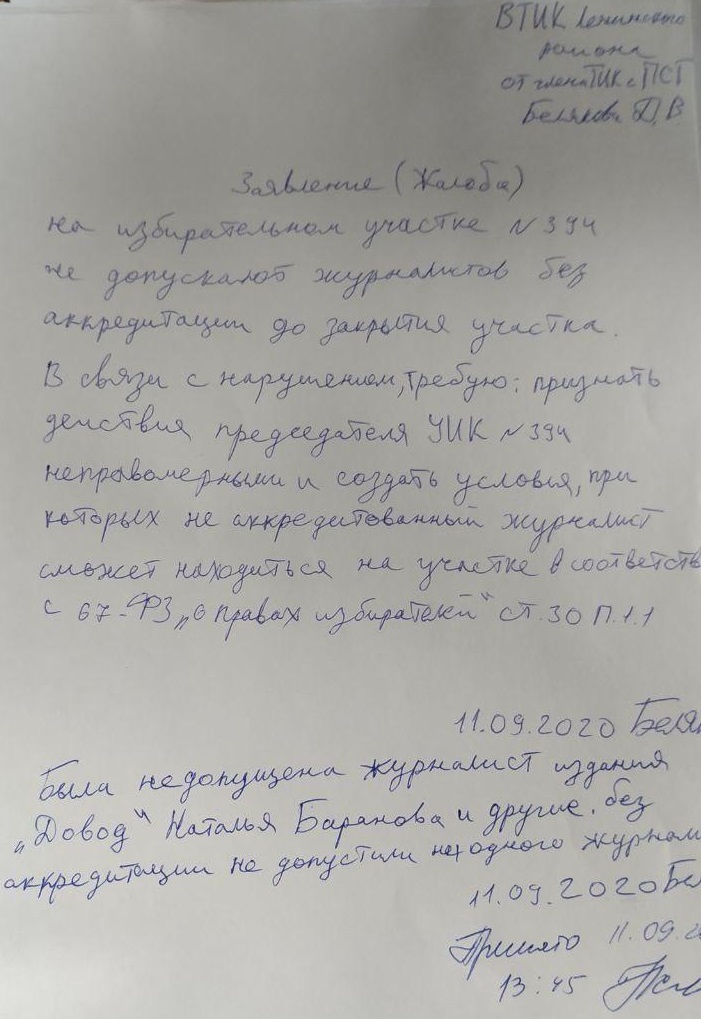 В ТИК Ленинского
района
от члена ТИК с ПСГ
Белякова Д,В
Заявление (Жалоба)
на избирательном участке №394
не допускают журналистов без
аккредитации до закрытия участка.
В связи с нарушением, требую: признать
действия председателя УИК №394
неправомерными и создать условия, при
которых не аккредитованный журналист
сможет находиться на участке в соответств
с 67-ФЗ „О правах избирателей“ ст.30 П.1.1
11.09.2020 Беля
Была недопущена журналист издания
„Довод“ Наталья Баранова и другие. без
аккредитации не допустили ни одного журнал
11.09.2020 Бел
Принято 11.09.2
13:45